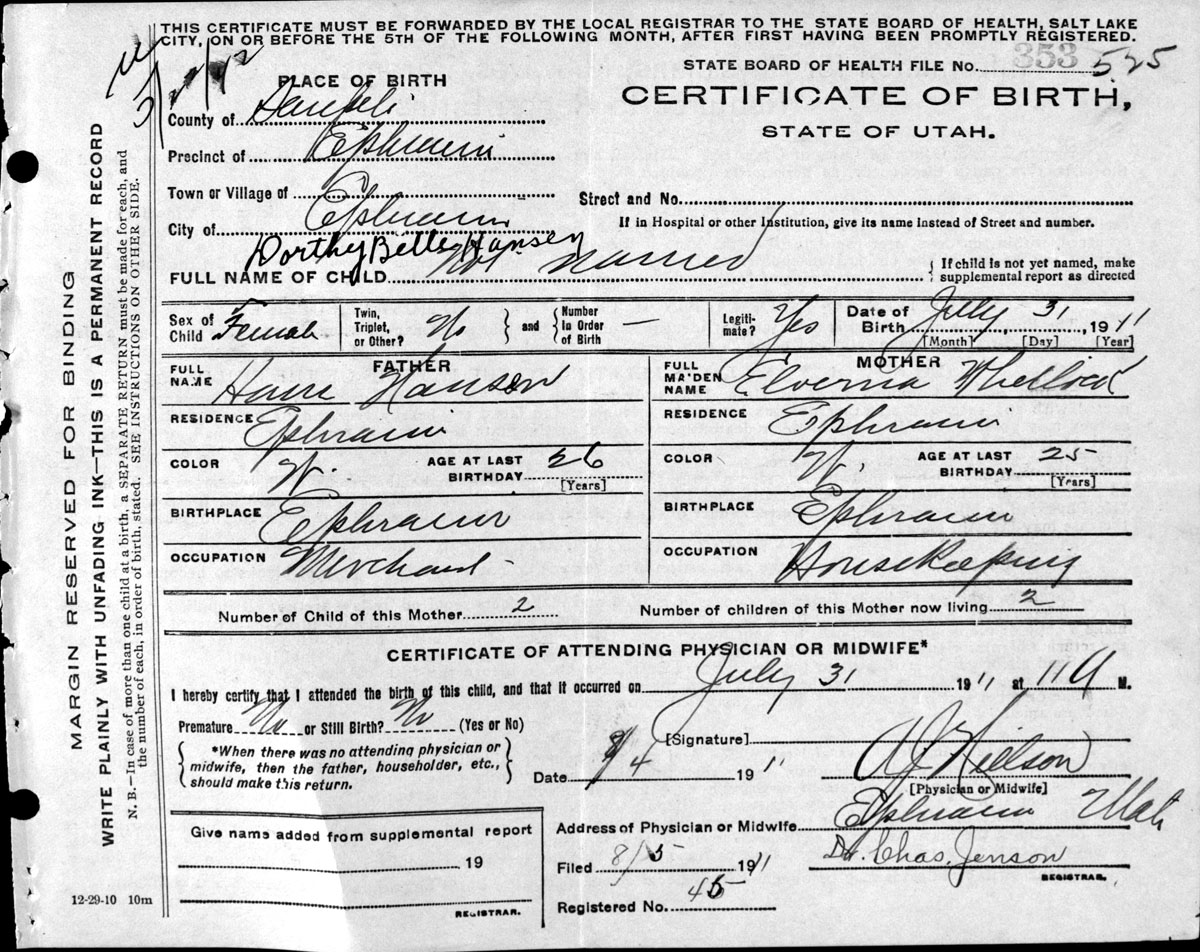 THIS CERTIFICATE MUST BE FORWARDED BY THE LOCAL REGISTRAR TO THE STATE BOARD OF HEALTH, SALT LAKE
CITY, ON OR BEFORE THE 5TH OF THE FOLLOWING MONTH, AFTER FIRST HAVING BEEN PROMPTLY REGISTERED.
STATE BOARD OF HEALTH FILE No. 353 525
PLACE OF BIRTH
CERTIFICATE OF BIRTH,
STATE OF UTAH.
County of Sanpete
Precinct of Ephraim
Town or Village of
Street and No.
City of Ephraim
If in Hospital or other Institution, give its name instead of Street and number.
Dorthy Belle Hansen
FULL NAME OF CHILD Not Named
{ If child is not yet named, make
supplemental report as directed
Sex of Child Female
Twin, Triplet, or Other? No
and
Number In Order of Birth —
Legiti-mate? Yes
Date of Birth July 31, 1911
[Month] [Day] [Year]
FATHER
FULL NAME Hansen
RESIDENCE Ephraim
COLOR W. AGE AT LAST BIRTHDAY 26
[Years]
BIRTHPLACE Ephraim
OCCUPATION Merchant
MOTHER
FULL MAIDEN NAME Elverria Whellock
RESIDENCE Ephraim
COLOR W. AGE AT LAST BIRTHDAY 25
[Years]
BIRTHPLACE Ephraim
OCCUPATION Housekeeping
Number of Child of this Mother 2
Number of children of this Mother now living 2
CERTIFICATE OF ATTENDING PHYSICIAN OR MIDWIFE*
I hereby certify that I attended the birth of this child, and that it occurred on July 31 1911 at 11 A M.
Premature No or Still Birth? No (Yes or No)
*When there was no attending physician or
midwife, then the father, householder, etc.,
should make this return.
[Signature]
Date 8/4 1911
Nielson
[Physician or Midwife]
Address of Physician or Midwife Ephraim Utah
Filed 8/5 1911
Dr. Chas. Jenson
REGISTRAR.
Registered No. 45
Give name added from supplemental report
19
REGISTRAR.
MARGIN RESERVED FOR BINDING
WRITE PLAINLY WITH UNFADING INK—THIS IS A PERMANENT RECORD
N. B.—In case of more than one child at a birth, a SEPARATE RETURN must be made for each, and
the number of each, in order of birth, stated. SEE INSTRUCTIONS ON OTHER SIDE.
12-29-10 10m